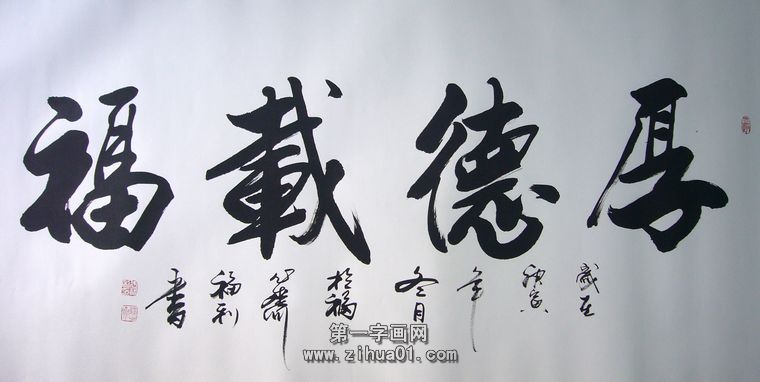 厚德載福
歲在 年 冬月 於福 齋 福利 書
第一字画网
www.zihua01.com